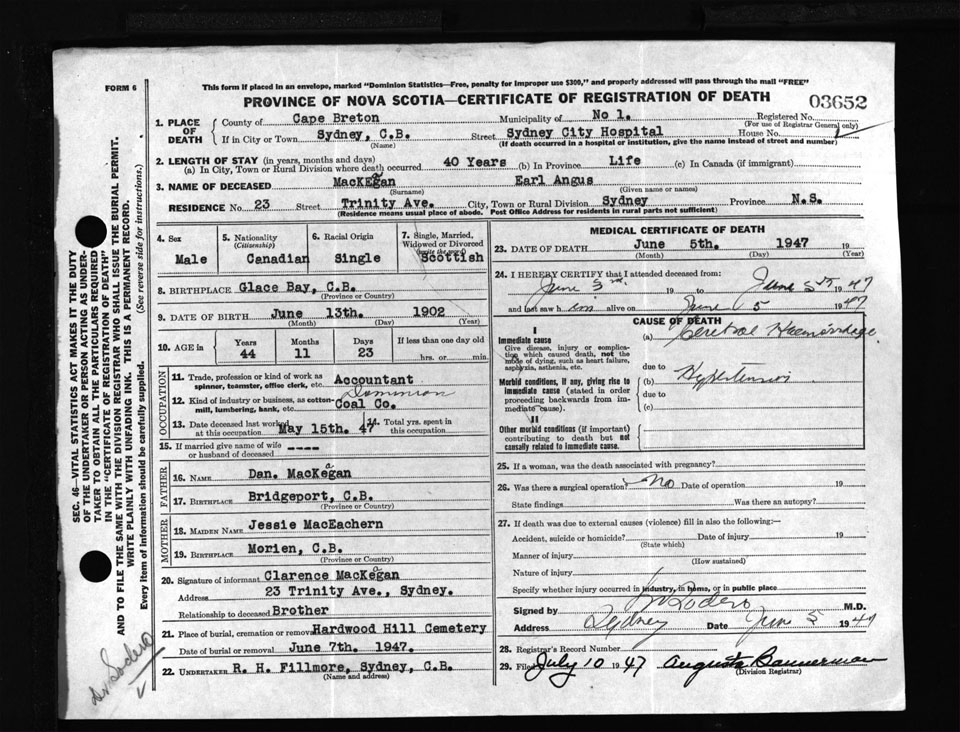 This form if placed in an envelope, marked "Dominion Statistics—Free, penalty for improper use $300," and properly addressed will pass through the mail "FREE"
FORM 6
PROVINCE OF NOVA SCOTIA—CERTIFICATE OF REGISTRATION OF DEATH
03652
1. PLACE OF DEATH
County of Cape Breton Municipality of No 1. Registered No.
(For use of Registrar General only)
If in City or Town Sydney, C.B. Street Sydney City Hospital House No.
(Name) (If death occurred in a hospital or institution, give the name instead of street and number)
2. LENGTH OF STAY (in years, months and days)
(a) In City, Town or Rural Division where death occurred 40 Years (b) In Province Life (c) In Canada (if immigrant)
3. NAME OF DECEASED MacKEgan a Earl Angus
(Surname) (Given name or names)
RESIDENCE No. 23 Street Trinity Ave. City, Town or Rural Division Sydney Province N.S.
(Residence means usual place of abode. Post Office Address for residents in rural parts not sufficient)
4. Sex Male
5. Nationality (Citizenship) Canadian
6. Racial Origin Single
7. Single, Married, Widowed or Divorced (write the word) Scottish
8. BIRTHPLACE Glace Bay, C.B.
(Province or Country)
9. DATE OF BIRTH June 13th. 1902
(Month) (Day) (Year)
10. AGE in Years 44 Months 11 Days 23 If less than one day old hrs. or min.
OCCUPATION
11. Trade, profession or kind of work as spinner, teamster, office clerk, etc. Accountant
12. Kind of industry or business, as cotton-mill, lumbering, bank, etc. Dominion Coal Co.
13. Date deceased last worked at this occupation May 15th. 47 14. Total yrs. spent in this occupation
15. If married give name of wife or husband of deceased ----
FATHER
16. NAME Dan. MacKegan a
17. BIRTHPLACE Bridgeport, C.B.
(Province or Country)
MOTHER
18. MAIDEN NAME Jessie MacEachern
19. BIRTHPLACE Morien, C.B.
(Province or Country)
20. Signature of informant Clarence MacKegan a
Address 23 Trinity Ave., Sydney.
Relationship to deceased Brother
21. Place of burial, cremation or removal Hardwood Hill Cemetery
Date of burial or removal June 7th. 1947.
22. UNDERTAKER R. H. Fillmore, Sydney, C.B.
(Name and address)
MEDICAL CERTIFICATE OF DEATH
23. DATE OF DEATH June 5th. 1947 19
(Month) (Day) (Year)
24. I HEREBY CERTIFY that I attended deceased from:
June 3rd 19 to June 5th 1947
and last saw him alive on June 5 1947
CAUSE OF DEATH
I
Immediate cause
Give disease, injury or complication which caused death, not the mode of dying, such as heart failure, asphyxia, asthenia, etc.
(a) Cerebral Haemorrhage
due to
Morbid conditions, if any, giving rise to immediate cause (stated in order proceeding backwards from immediate cause).
(b) Hypertension
due to
(c)
II
Other morbid conditions (if important) contributing to death but not causally related to immediate cause.
25. If a woman, was the death associated with pregnancy?
26. Was there a surgical operation? No Date of operation 19
State findings Was there an autopsy?
27. If death was due to external causes (violence) fill in also the following:—
Accident, suicide or homicide? Date of injury 19
(State which)
Manner of injury
(How sustained)
Nature of injury
Specify whether injury occurred in industry, in home, or in public place
Signed by Sodero M.D.
Address Sydney Date June 5 1947
28. Registrar's Record Number
29. Filed July 10 1947 Augusta Bannerman
(Division Registrar)
SEC. 46—VITAL STATISTICS ACT MAKES IT THE DUTY
OF THE UNDERTAKER OR PERSON ACTING AS UNDER-
TAKER TO OBTAIN ALL THE PARTICULARS REQUIRED
IN THE "CERTIFICATE OF REGISTRATION OF DEATH"
AND TO FILE THE SAME WITH THE DIVISION REGISTRAR WHO SHALL ISSUE THE BURIAL PERMIT.
WRITE PLAINLY WITH UNFADING INK. THIS IS A PERMANENT RECORD.
Every item of information should be carefully supplied. (See reverse side for instructions.)
Dr Sodero